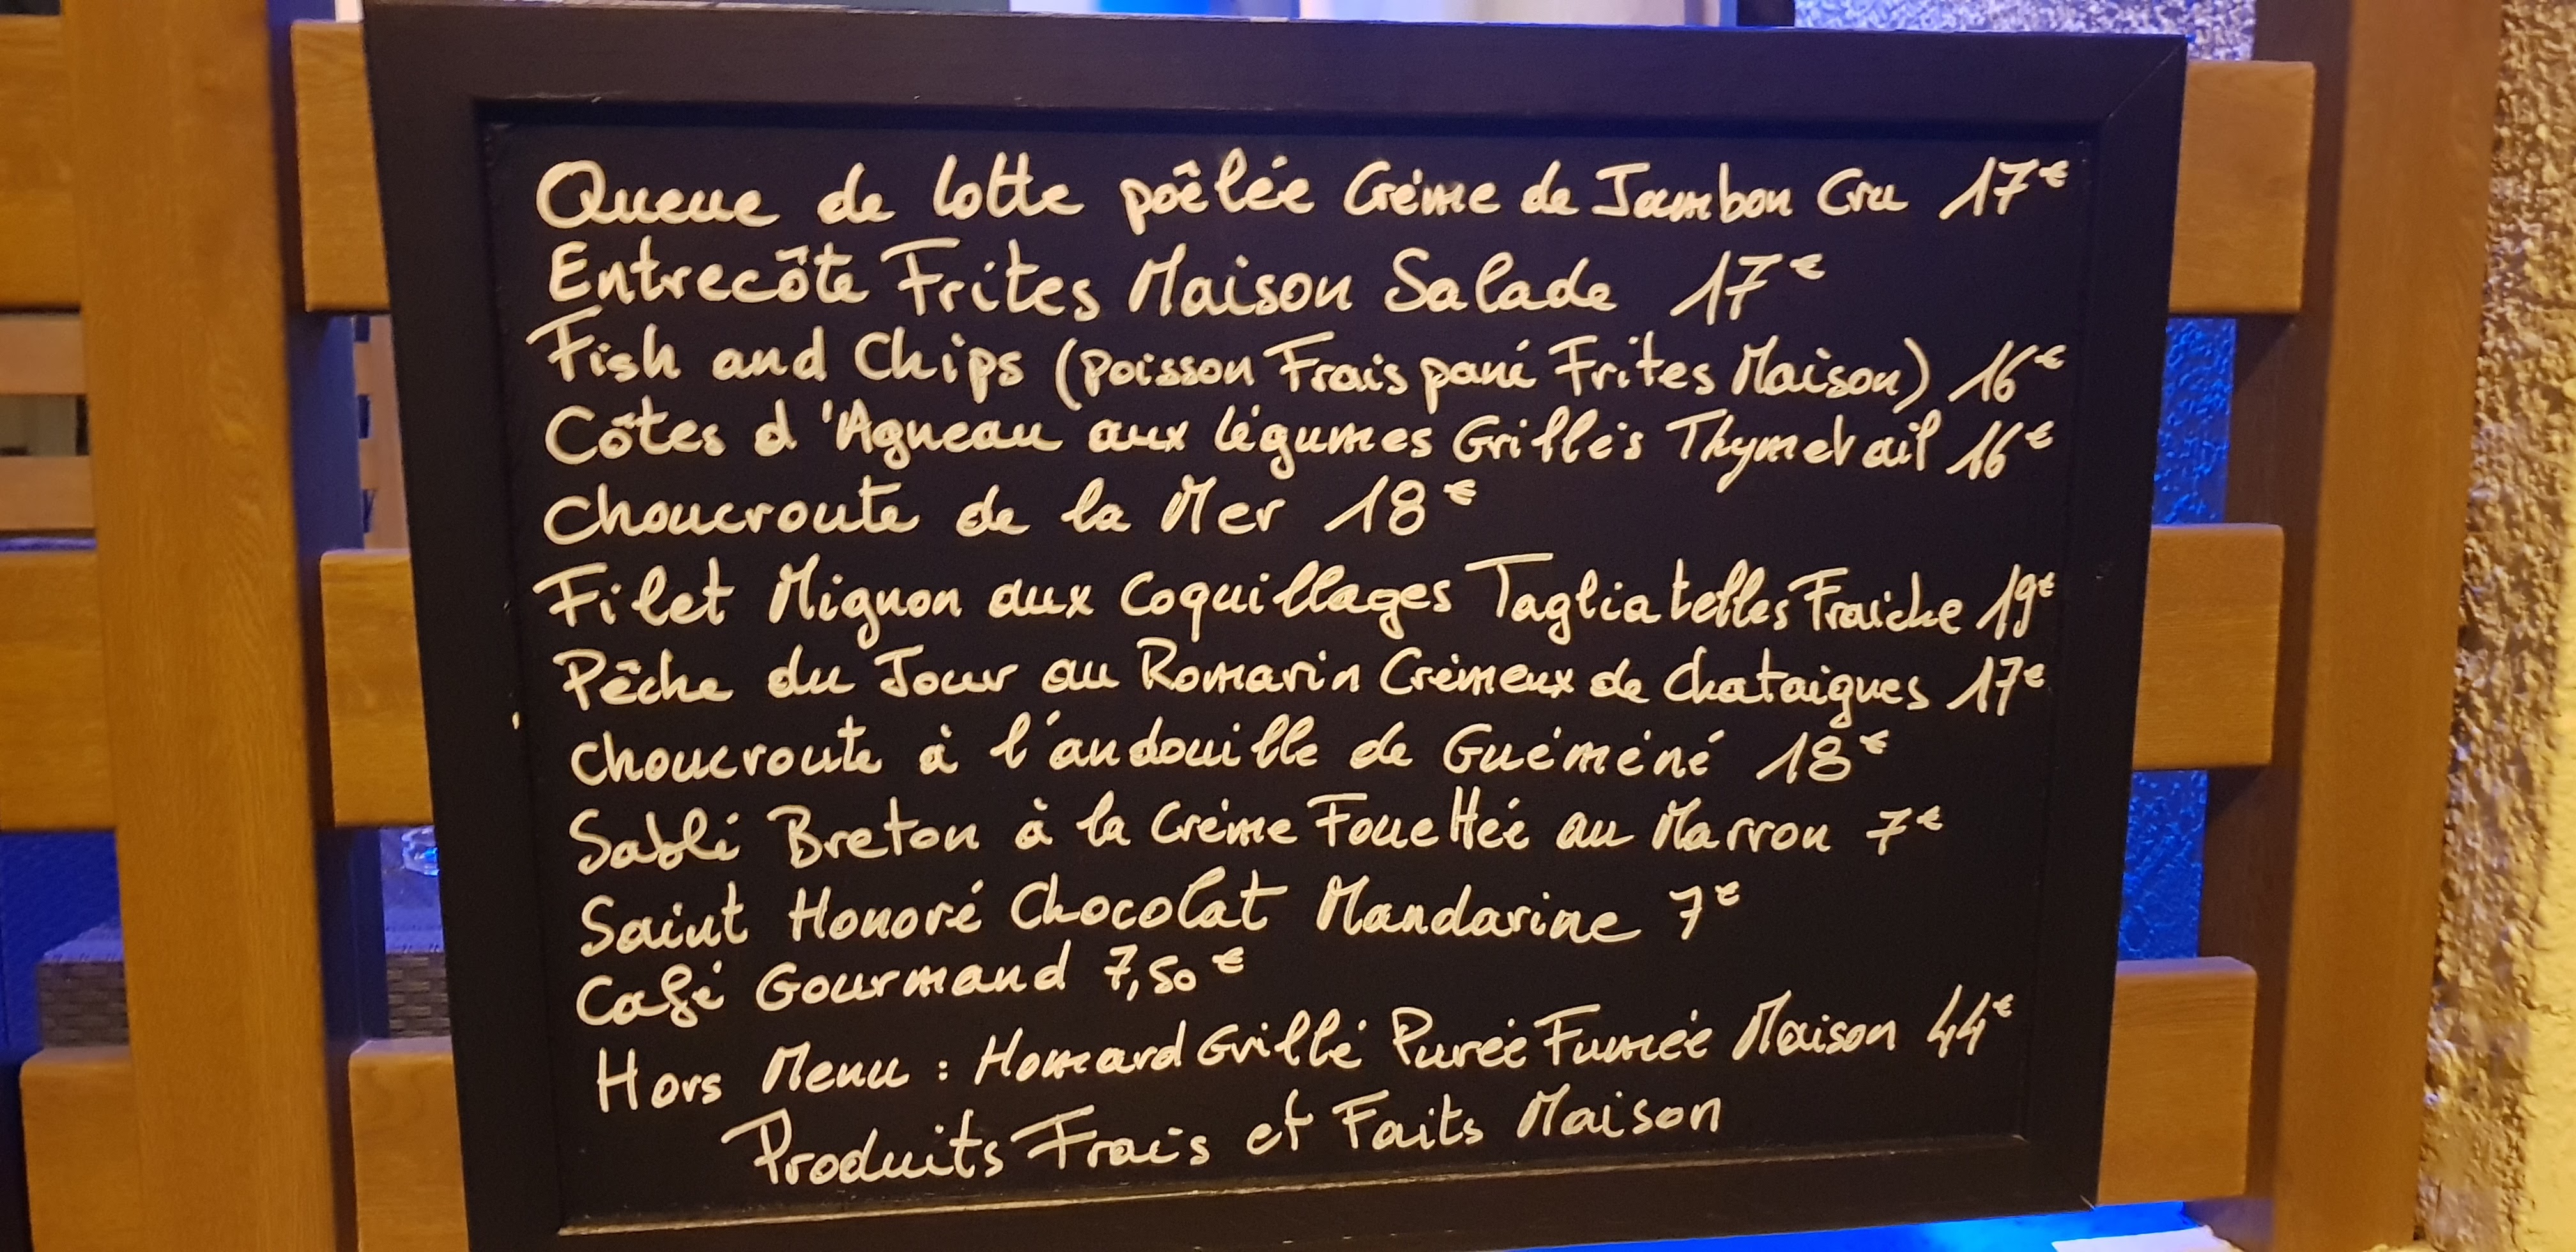 Queue de lotte poêlée Crème de Jambon Cru 17€
Entrecôte Frites Maison Salade 17€
Fish and Chips (Poisson Frais pané Frites Maison) 16€
Côtes d'Agneau aux légumes Grillés Thym et ail 16€
Choucroute de la Mer 18€
Filet Mignon aux Coquillages Tagliatelles Fraîche 19€
Pêche du Jour au Romarin Crèmeux de Chataignes 17€
Choucroute à l'andouille de Guéméné 18€
Sablé Breton à la Crème Fouettée au Marron 7€
Saint Honoré Chocolat Mandarine 7€
Café Gourmand 7,50€
Hors Menu : Homard Grillé Purée Fumée Maison 44€
Produits Frais et Faits Maison